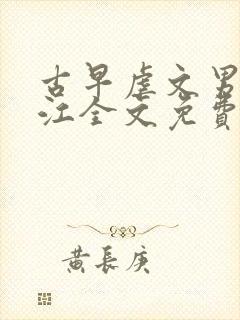 古早虐文男
江全文免費
黄長庚